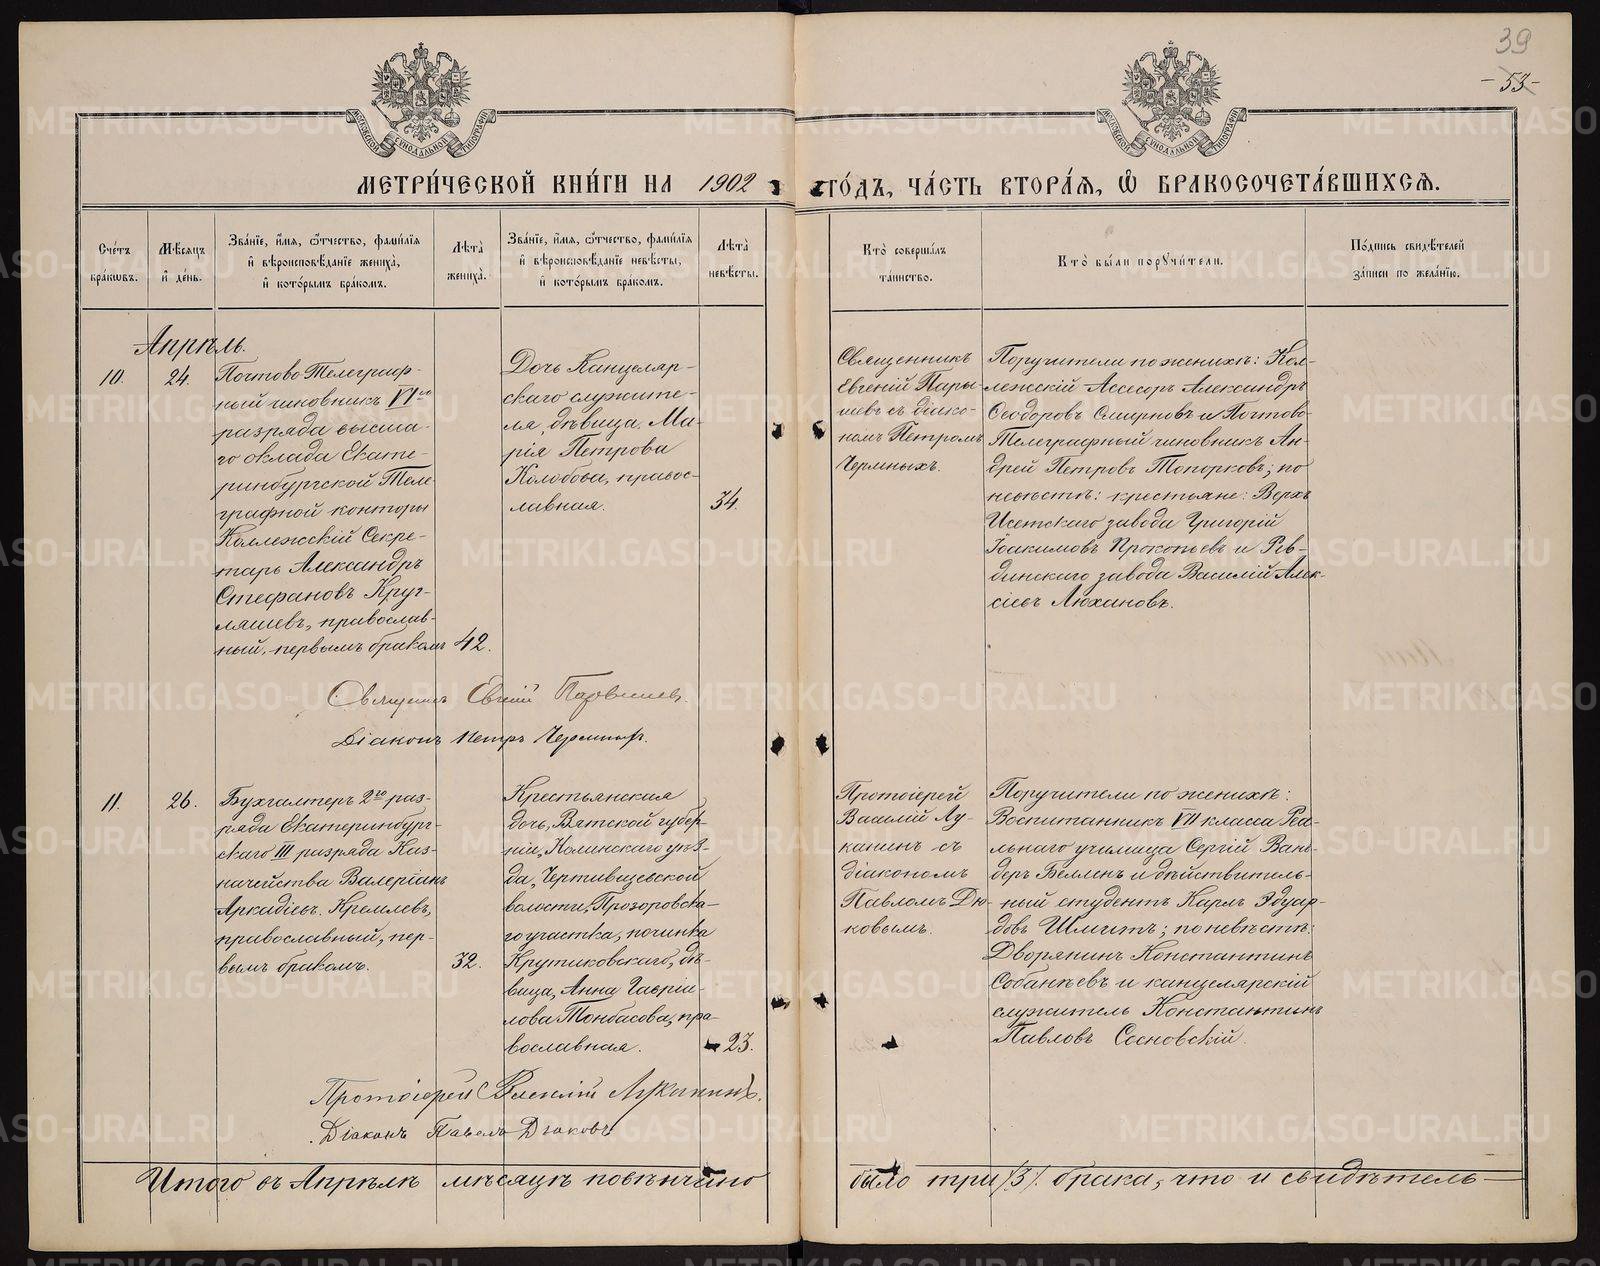 39
-53-
МЕТРИ́ЧЕСКОЙ КНИ́ГИ НА 1902 ГО́ДЪ, ЧА́СТЬ ВТОРА́Я, Ѡ БРАКОСОЧЕТА́ВШИХСЯ.
Сче́тъ бра́кωвъ.
Мѣ́сяцъ и̓ де́нь.
Зва́нїе, и́мя, ѻ́тчество, фами́лїя
и̓ вѣроисповѣ́данїе жениха̀,
и̓ кото́рымъ бра́комъ.
Лѣ́та
жениха̀.
Зва́нїе, и́мя, ѻ́тчество, фами́лїя
и̓ вѣроисповѣ́данїе невѣ́сты,
и̓ кото́рымъ бра́комъ.
Лѣ́та
невѣ́сты.
Кто̀ соверша́лъ
та́инство.
Кто̀ бы́ли порꙋчи́тели.
По́дпись свидѣ́телей
за́писи по жела́нїю.
Апрѣль.
10. 24.
Почтово Телеграф-
ный чиновникъ VIго
разряда высша-
го оклада Екате-
ринбургской Теле
графной конторы
Коллежскій Секре-
тарь Александръ
Стефановъ Круг-
ляшевъ, православ-
ный, первымъ бракомъ 42.
Дочь Канцеляр-
скаго служите-
ля, дѣвица, Ма-
рія Петрова
Колобова, правос-
лавная.
34.
Священникъ
Евгеній Пары-
шевъ съ діако-
номъ Петромъ
Чермныхъ.
Поручители по женихѣ: Кол-
лежскій Ассесоръ Александръ
Ѳеодоровъ Смирновъ и Почтово-
Телеграфный чиновникъ Ан-
дрей Петровъ Топорковъ; по
невѣстѣ: крестьяне: Верхъ
Исетскаго завода Григорій
Іоакимовъ Прокопьевъ и Рев-
динскаго завода Василій Алек-
сіевъ Люхановъ.
Священникъ Евгеній Парышевъ.
Діаконъ Петръ Чермныхъ.
11. 26.
Бухгалтеръ 2го раз-
ряда Екатеринбург-
скаго III разряда Каз-
начейства Валеріанъ
Аркадіевъ Кремлевъ,
православный, пер-
вымъ бракомъ. 32.
Крестьянская
дочь, Вятской губер-
ніи, Нолинскаго уѣз-
да, Чертищевской
волости, Прозоровска-
го участка, починка
Крутиковскаго, дѣ-
вица, Анна Гавріи-
лова Тонбасова, пра-
вославная. 23.
Протоіерей
Василій Лу-
канинъ съ
діакономъ
Павломъ Дю-
ковымъ.
Поручители по женихѣ:
Воспитанникъ VII класса Реа-
льнаго училища Сергій Ван-
деръ Беллен и дѣйствитель-
ный студентъ Карлъ Эдуар-
довъ Шмитъ; по невѣстѣ:
Дворянинъ Константинъ
Собанѣевъ и канцелярскій
служитель Константинъ
Павловъ Сосновскій.
Протоіерей Василій Луканинъ.
Діаконъ Павелъ Дюковъ
Итого въ Апрѣлѣ мѣсяцѣ повѣнчано было три /3/ брака, что и свидѣтель-
METRIKI.GASO-URAL.RU